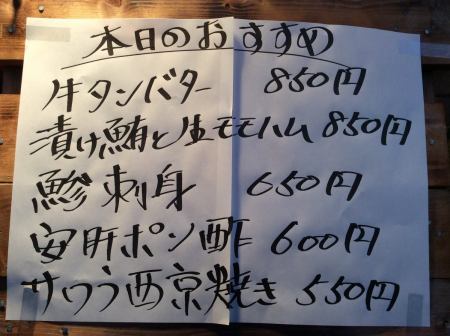 本日のおすすめ
牛タンバター 850円
漬け鮪と生モモハム 850円
鯵刺身 650円
安肝ポン酢 600円
サワラ西京焼き 550円